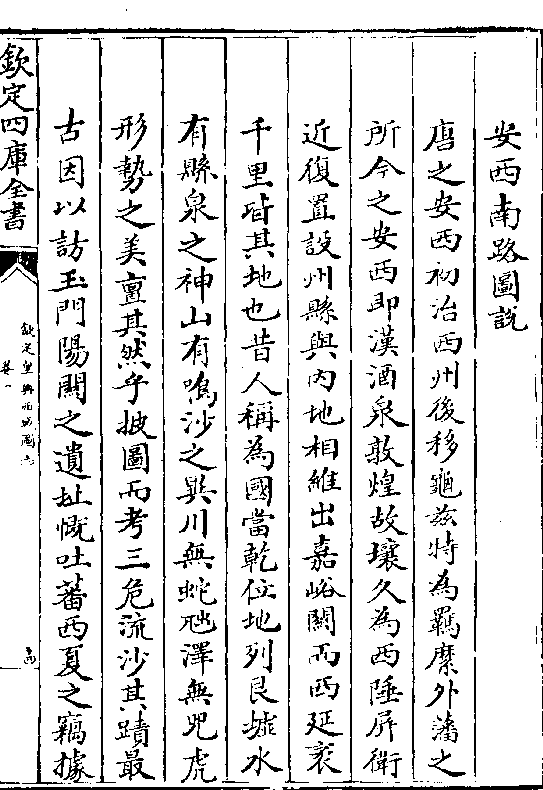 安西南路圖説
唐之安西初治西州後移龜茲特為羈縻外藩之
所今之安西即漢酒泉敦煌故壤久為西陲屏衛
近復置設州縣與内地相維出嘉峪關而西延袤
千里皆其地也昔人稱為國當乾位地列艮墟水
有縣泉之神山有鳴沙之異川無蛇虺澤無兕虎
形勢之美亶其然乎披圖而考三危流沙其蹟最
古因以訪玉門陽關之遺址慨吐蕃西夏之竊據
欽定四庫全書
欽定皇輿西域圖志
卷一